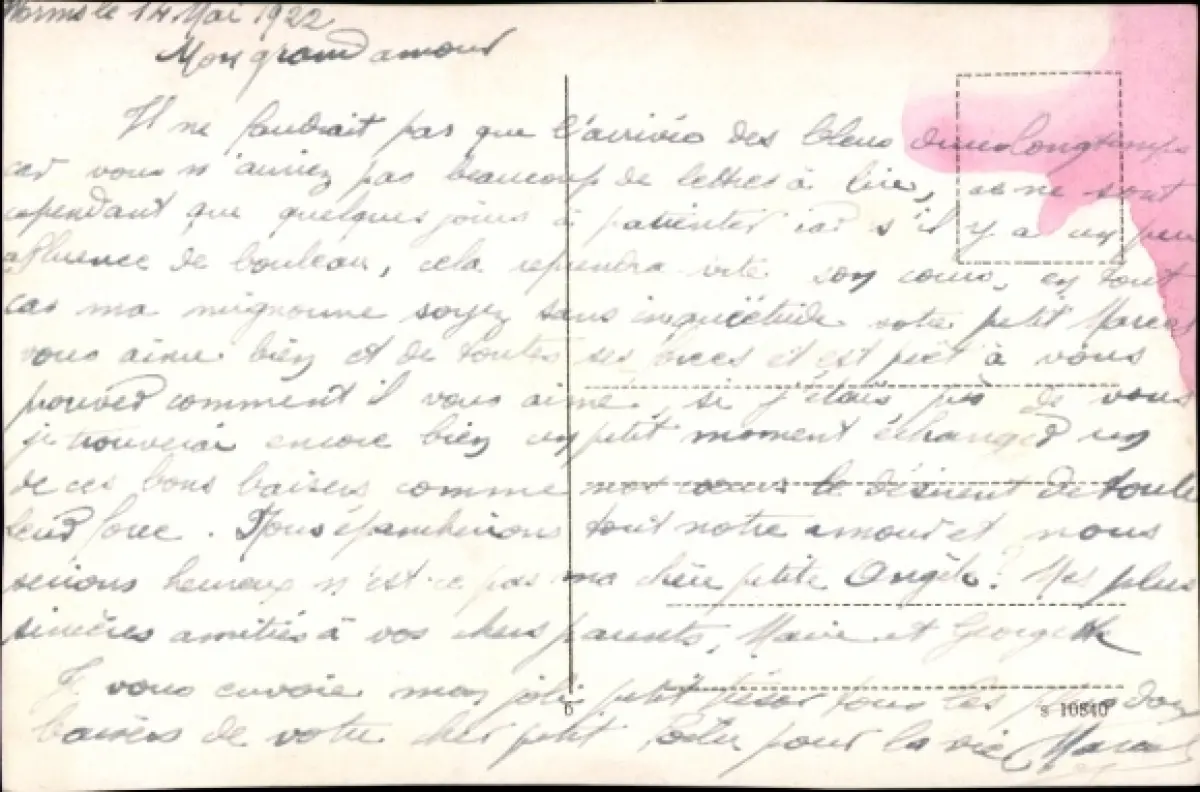 Worms le 14 Mai 1922
Mon grand amour
Il ne faudrait pas que l'arrivée des bleus dure longtemps
car vous n'auriez pas beaucoup de lettres à lire, ce ne sont
cependant que quelques jours à patienter car s'il y a un peu
affluence de bouleau, cela reprendra vite son cours, en tout
cas ma mignonne soyez sans inquiétude votre petit Marcel
vous aime bien et de toutes ses forces et est prêt à vous
prouver comment il vous aime, si j'étais près de vous
je trouverai encore bien un petit moment échanger un
de ces bons baisers comme nos cœurs le désirent de toute
leur force. Nous épancherions tout notre amour et nous
serions heureux n'est-ce pas ma chère petite Angèle? Mes plus
sincères amitiés à vos chers parents, Marie et Georgette
Je vous envoie mon joli petit trésor tous les plus doux
baisers de votre cher petit Poilu pour la vie Marcel
6
S 10840